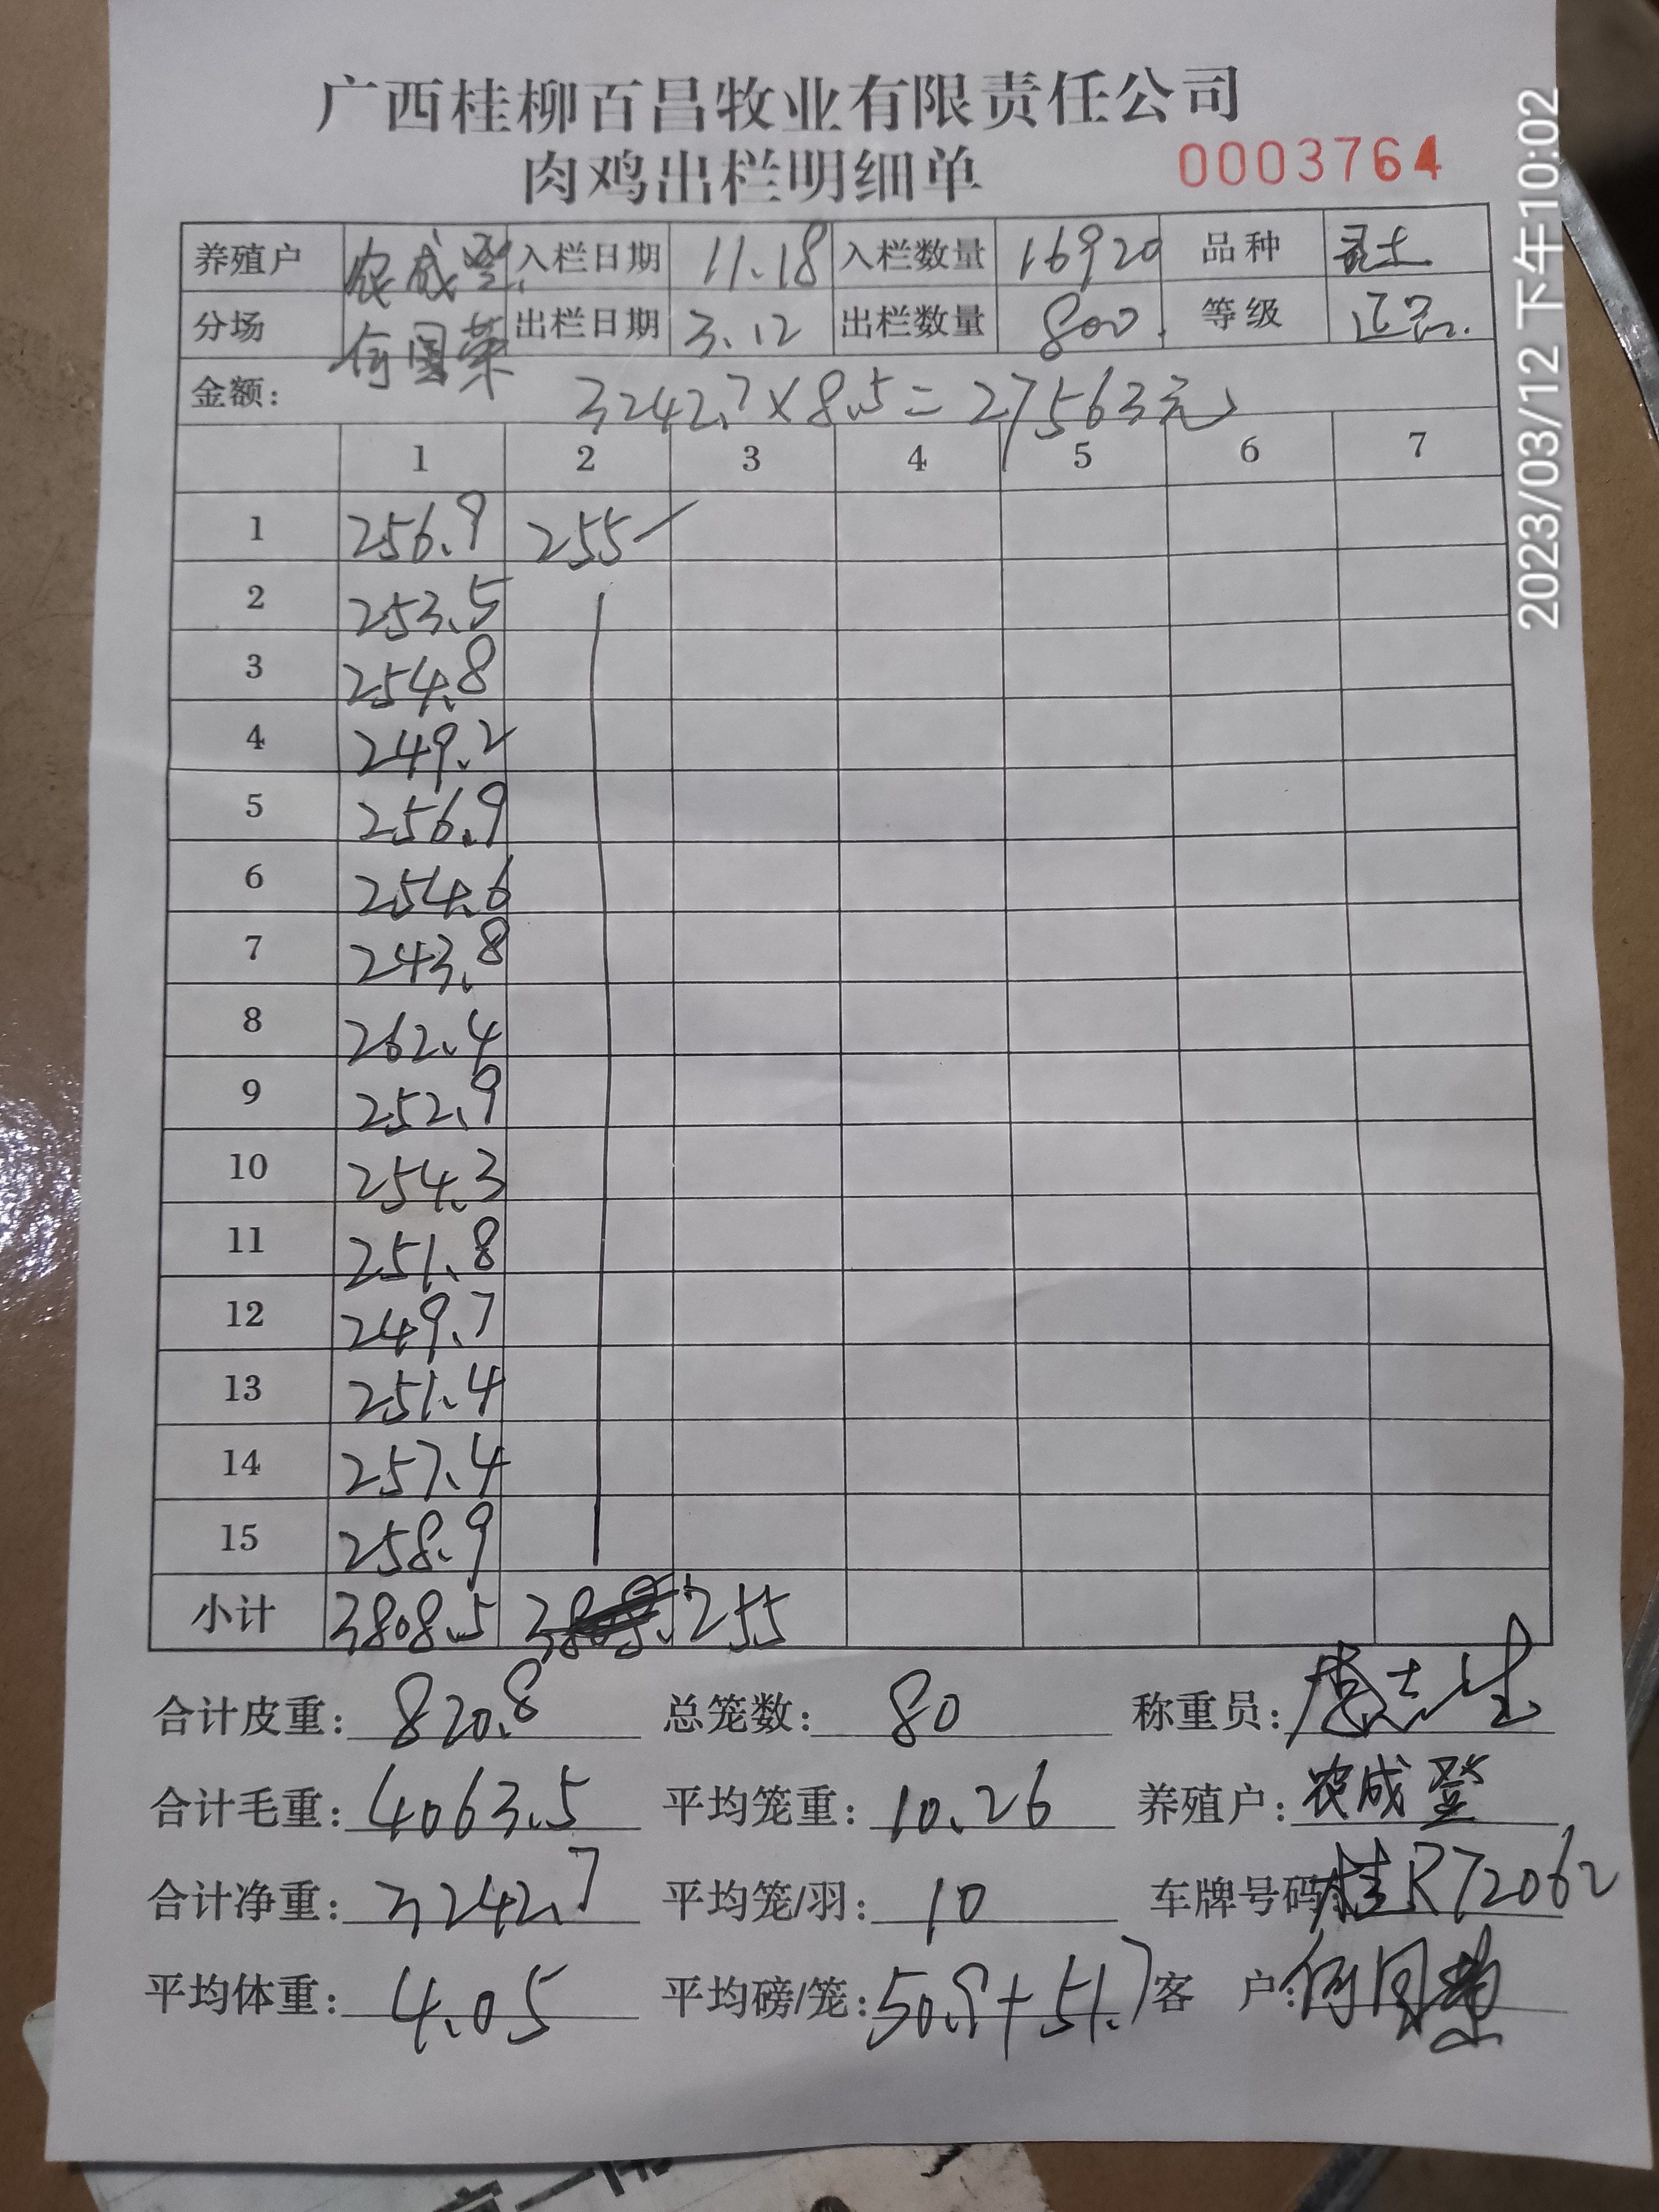 广西桂柳百昌牧业有限责任公司
肉鸡出栏明细单 0003764
养殖户 农成登 入栏日期 11.18 入栏数量 16920 品种 土
分场 何国荣 出栏日期 3.12 出栏数量 800. 等级 正品.
金额: 3242.7×8.5=27563元
1 2 3 4 5 6 7
1 256.9 255
2 253.5
3 254.8
4 249.2
5 256.9
6 254.6
7 243.8
8 262.4
9 252.9
10 254.3
11 251.8
12 249.7
13 251.4
14 257.4
15 258.9
小计 3808.5 255
合计皮重: 820.8 总笼数: 80 称重员:
合计毛重: 4063.5 平均笼重: 10.26 养殖户: 农成登
合计净重: 3242.7 平均笼/羽: 10 车牌号码: 桂R72062
平均体重: 4.05 平均磅/笼: 50.9+51.7 客 户: 何国荣
2023/03/12 下午10:02